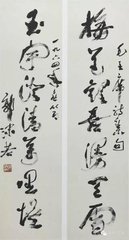 毛主席詩
梅花歡喜漫天雪
一九六四年
郭沫若
玉宇澄清萬里埃